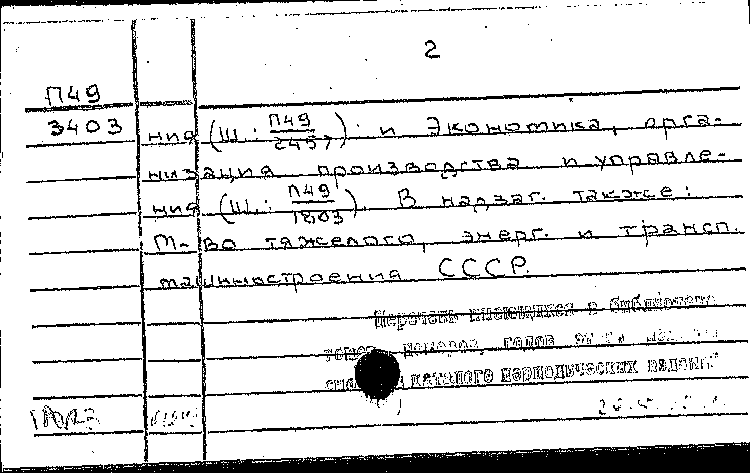 2
П49
3403
ния (Ш: П49/2457) и Экономика, орга-
низация производства и управле-
ния (Ш.: П49/1803). В надзаг. также:
М-во тяжелого, энерг. и трансп.
машиностроения СССР.
Перечень имеющихся в библиотеке
томов, номеров, годов
каталоге периодических изданий